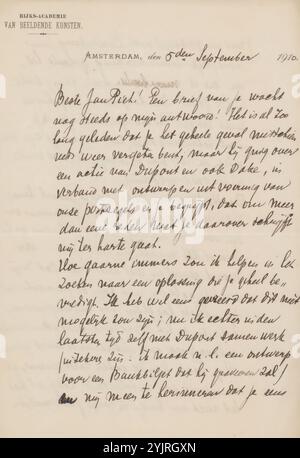 RIJKS-ACADEMIE
VAN BEELDENDE KUNSTEN.
AMSTERDAM, den 5den September 1910.
Beste Jan Piet! Een brief van je wacht
nog steeds op mijn antwoord! Het is al zoo
lang geleden dat je het geheele geval misschien
weer vergeten bent, maar hij ging over
een actie van Dupont en ook Dake, in
verband met ontwerpen uit voering van
onze postzegels en je begrijpt, dat om meer
dan eene reden wat je daarover schrijft
mij ter harte gaat.
Hoe gaarne immers zou ik helpen in het
zoeken naar een oplossing die je geheel be-
vredigt. Ik heb wel eens dat dit niet
mogelijk zou zijn; nu ik echter in den
laatsten tijd zelf met Dupont samen werk
zijn. Ik maak n.l. een ontwerp
voor een Bankbiljet dat hij graveeren zal
mij meer te herinneren dat je eens
alamy